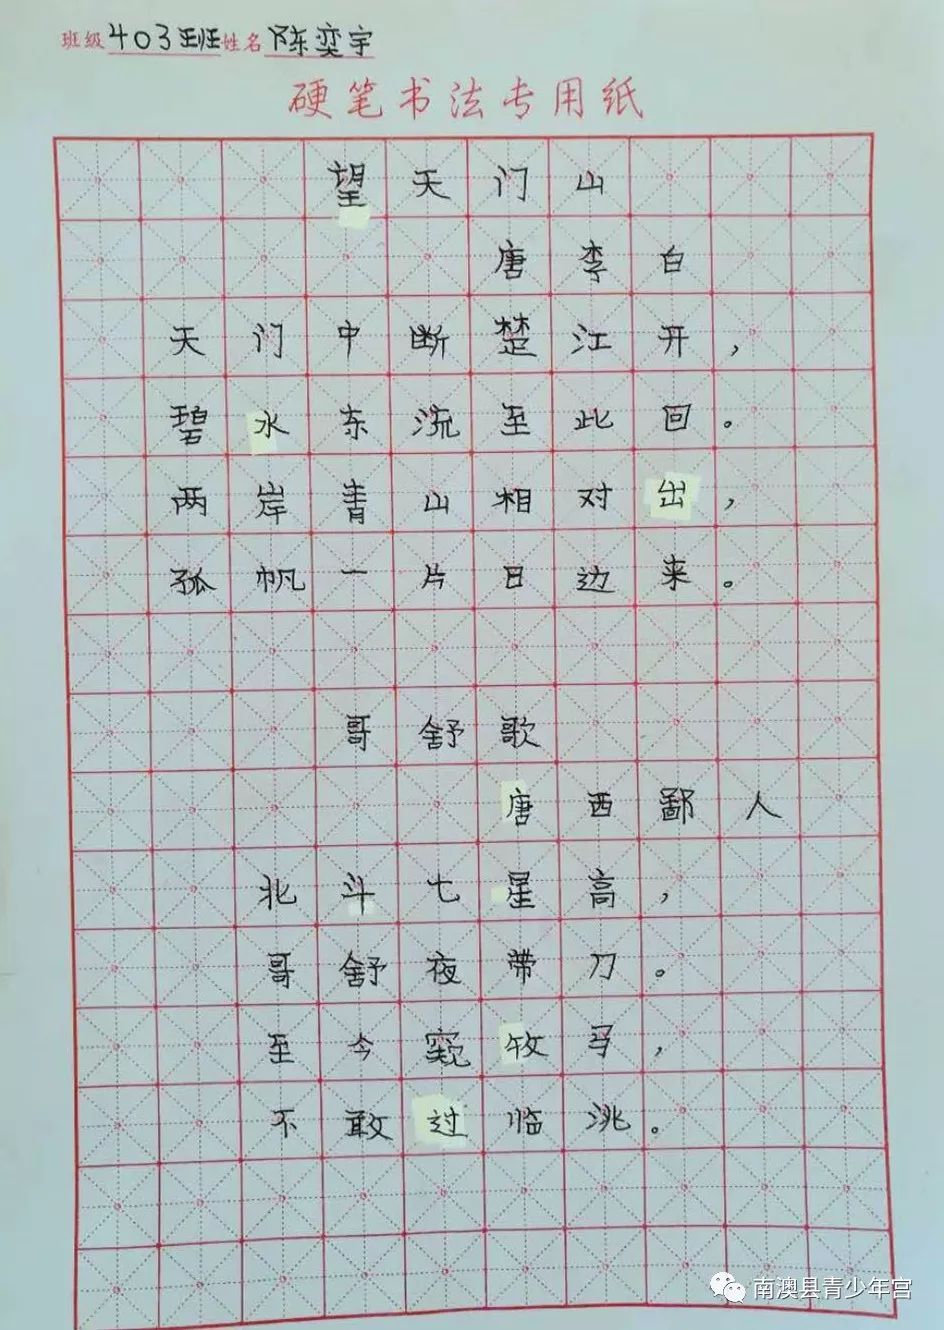 班级403班姓名陈奕宇
硬笔书法专用纸
望天门山
唐李白
天门中断楚江开，
碧水东流至此回。
两岸青山相对出，
孤帆一片日边来。
哥舒歌
唐西鄙人
北斗七星高，
哥舒夜带刀。
至今窥牧马，
不敢过临洮。
南澳县青少年宫